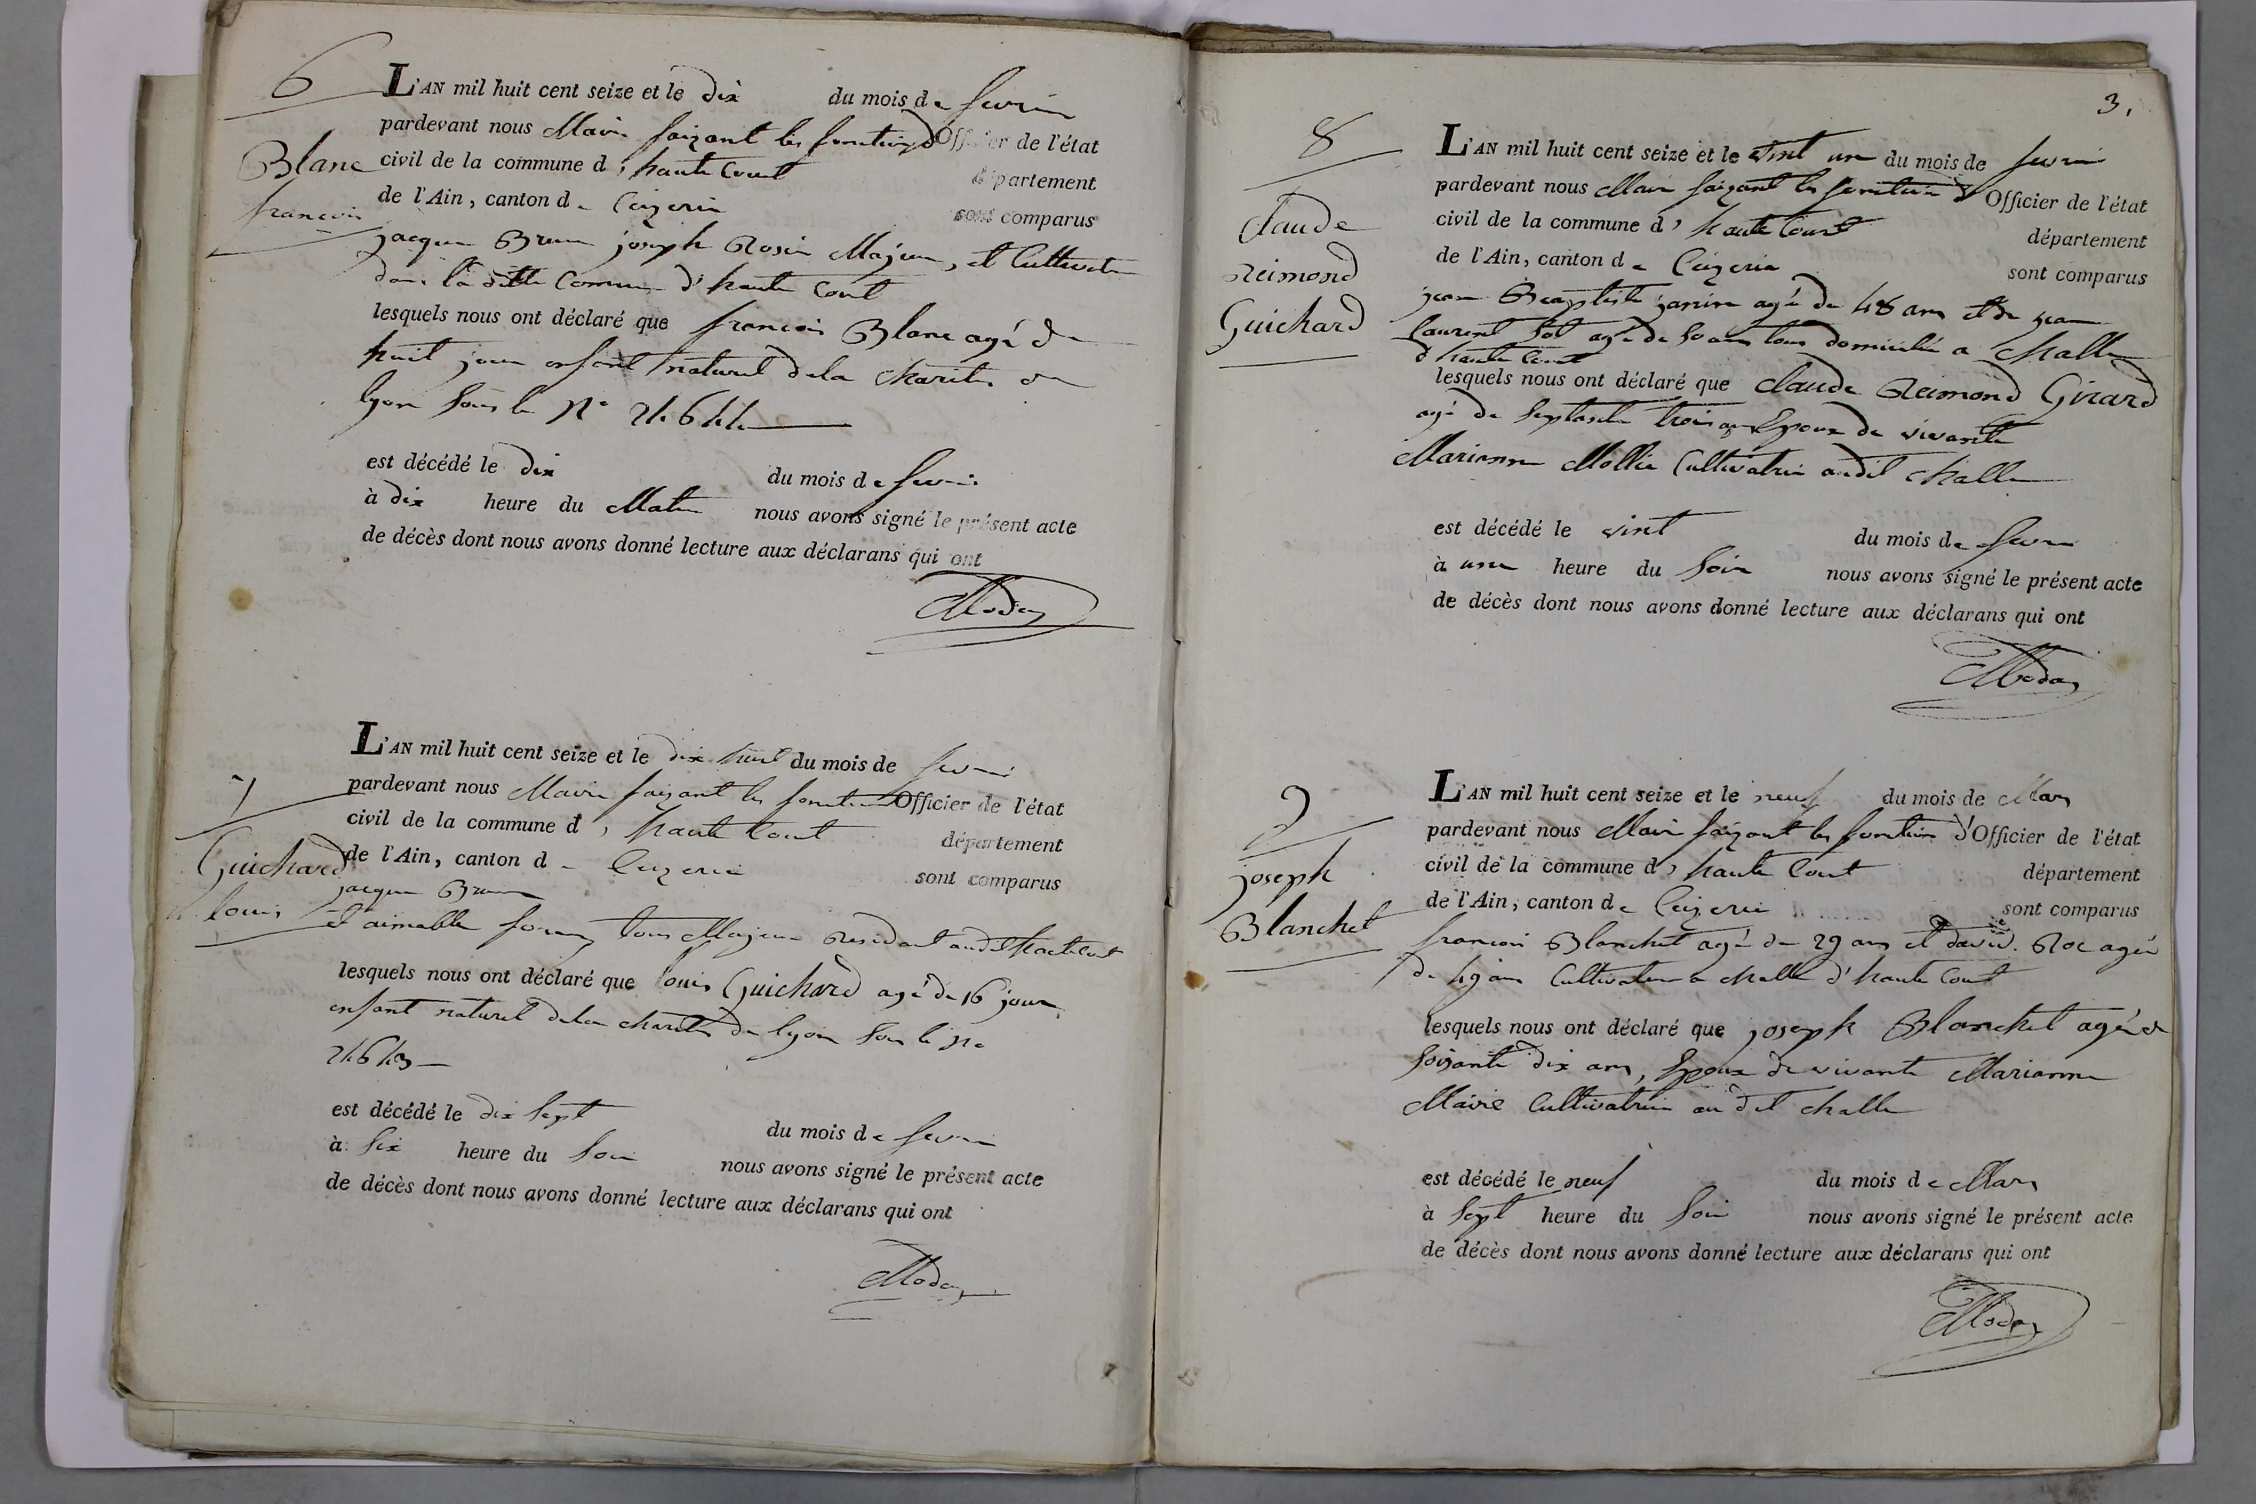 6
Blanc
francois
L'AN mil huit cent seize et le dix du mois de fevrie
pardevant nous Maire faizant les fonctions d Officier de l'état
civil de la commune d'haute Court département
de l'Ain, canton de Ceizeria sont comparus
jacque Brun joseph Rosin Majeur, et Cultivateur
dans la ditte Commune d'haute Court
lesquels nous ont déclaré que francois Blanc agé de
huit jour enfant naturel dela Charite de
lyon sous le No
est décédé le dix du mois de fevrie
à dix heure du Matin nous avons signé le présent acte
de décès dont nous avons donné lecture aux déclarans qui ont
7
Guichard
louis
L'AN mil huit cent seize et le dix huit du mois de fevrie
pardevant nous Maire faizant les fonction Officier de l'état
civil de la commune d'haute Court département
de l'Ain, canton de Ceizeria sont comparus
jacque Brun
et aimable tous Majeur Residant audit hautecourt
lesquels nous ont déclaré que louis Guichard agé de 16 jour
enfant naturel dela charite de lyon sous le No
est décédé le dix sept du mois de fevrie
à six heure du soir nous avons signé le présent acte
de décès dont nous avons donné lecture aux déclarans qui ont
3.
8
Claude
Reimond
Guichard
L'AN mil huit cent seize et le vint un du mois de fevrie
pardevant nous Maire faizant les fonction d Officier de l'état
civil de la commune d'haute Court département
de l'Ain, canton de Ceizeria sont comparus
jean Baptiste janin agé de 48 ans et de jean
laurent Sot agé de 50 ans tous domicilié a Challe
d'haute Court
lesquels nous ont déclaré que Claude Reimond Girard
agé de septante trois ans Epoux de vivante
Marianne Mollie Cultivatrice audit Challe
est décédé le vint du mois de fevrie
à une heure du soir nous avons signé le présent acte
de décès dont nous avons donné lecture aux déclarans qui ont
9
joseph
Blanchet
L'AN mil huit cent seize et le neuf du mois de Mars
pardevant nous Maire faizant les fonction d'Officier de l'état
civil de la commune d'haute Court département
de l'Ain, canton de Ceizerie sont comparus
francois Blanchet agé de 29 ans et david Roc agé
de 49 ans Cultivateur a challe d'haute Court
lesquels nous ont déclaré que joseph Blanchet agé de
soizante dix ans, Epoux de vivante Marianne
Cultivatrice au dit challe
est décédé le neuf du mois de Mars
à sept heure du soir nous avons signé le présent acte
de décès dont nous avons donné lecture aux déclarans qui ont